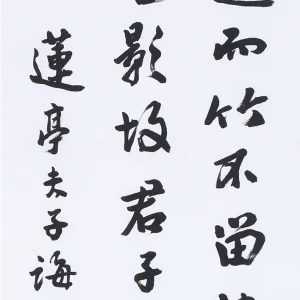 而竹不留
影故君子
蓮亭夫子誨